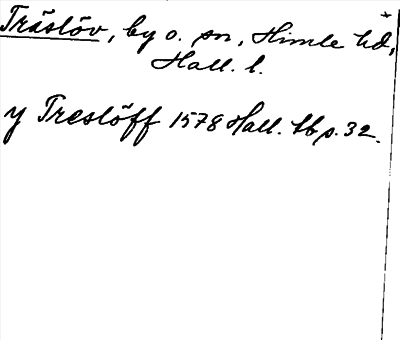 Träslöv, by o. sn, Himle hd,
Hall. l.
y Treslöff 1578 Hall. tb p. 32.